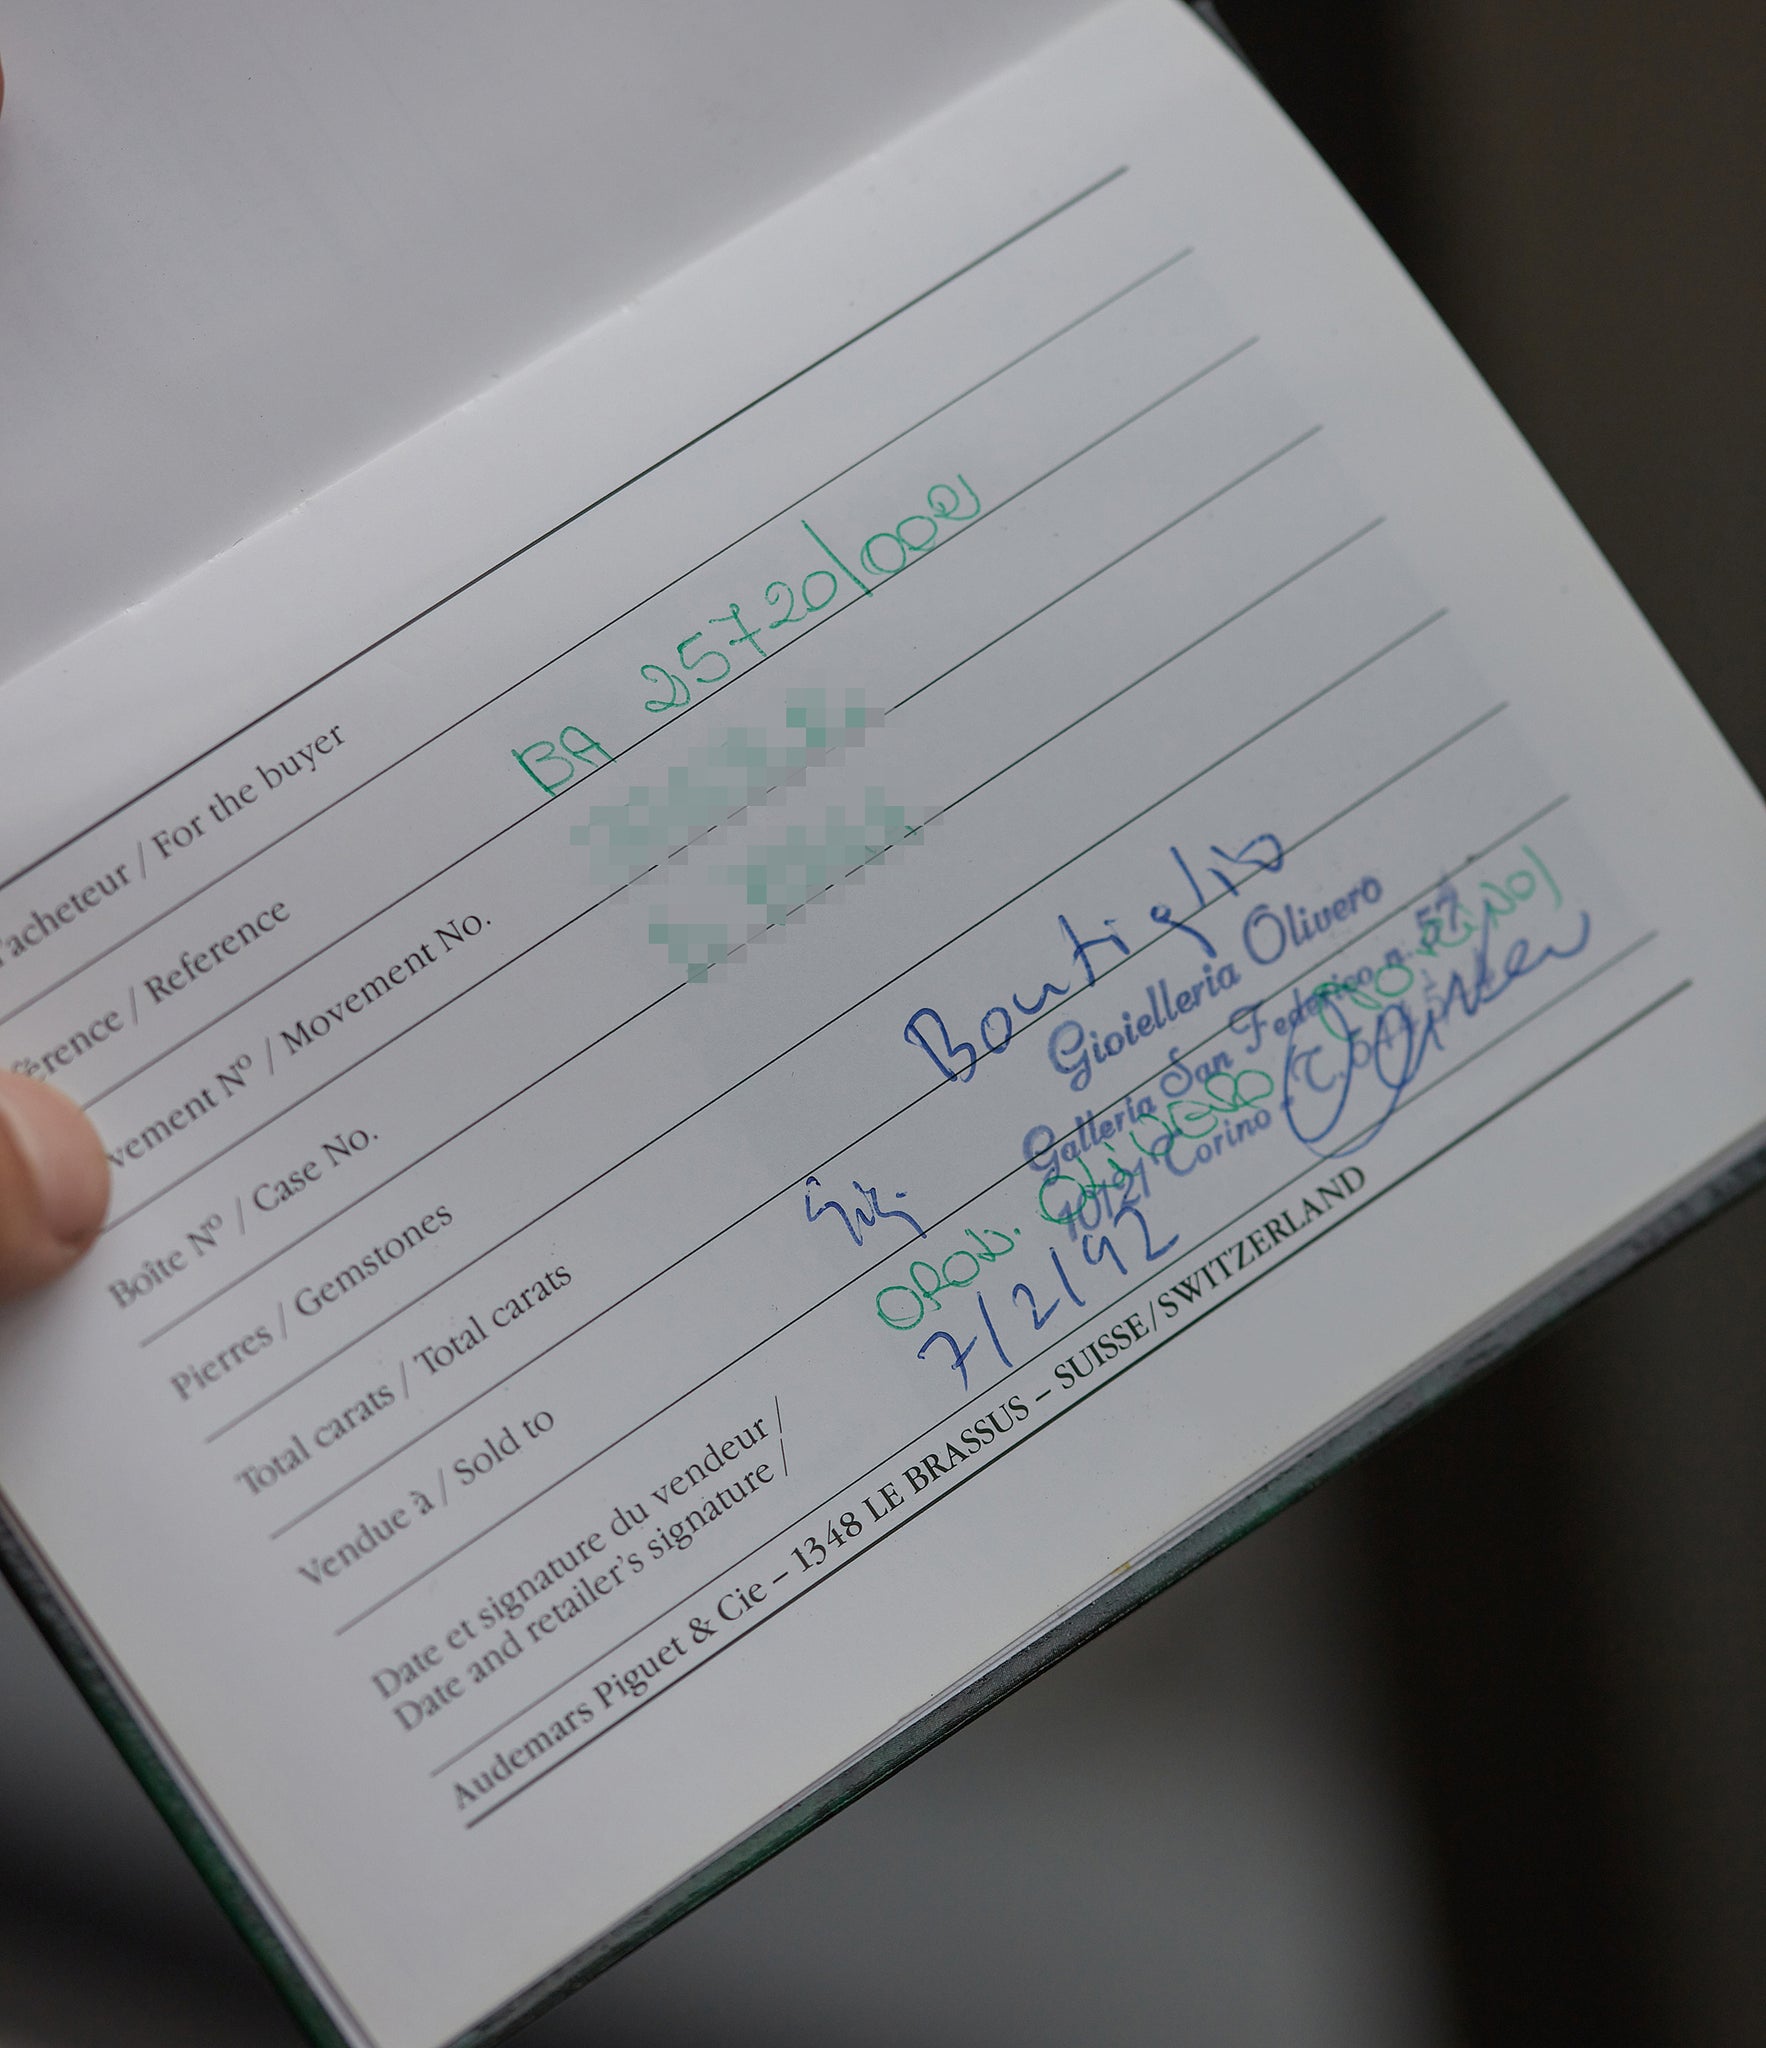 l'acheteur / For the buyer
férence / Reference BA 25720/002
vement Nº / Movement No.
Boîte Nº / Case No.
Pierres / Gemstones
Total carats / Total carats
Vendue à / Sold to Sig. Bontiglio
Gioielleria Olivero
Galleria San Federico n. 57
10121 Torino - T.
OROL. OLIVERO TORINO)
Date et signature du vendeur /
Date and retailer's signature / 7/2/92
Audemars Piguet & Cie – 1348 LE BRASSUS – SUISSE/SWITZERLAND